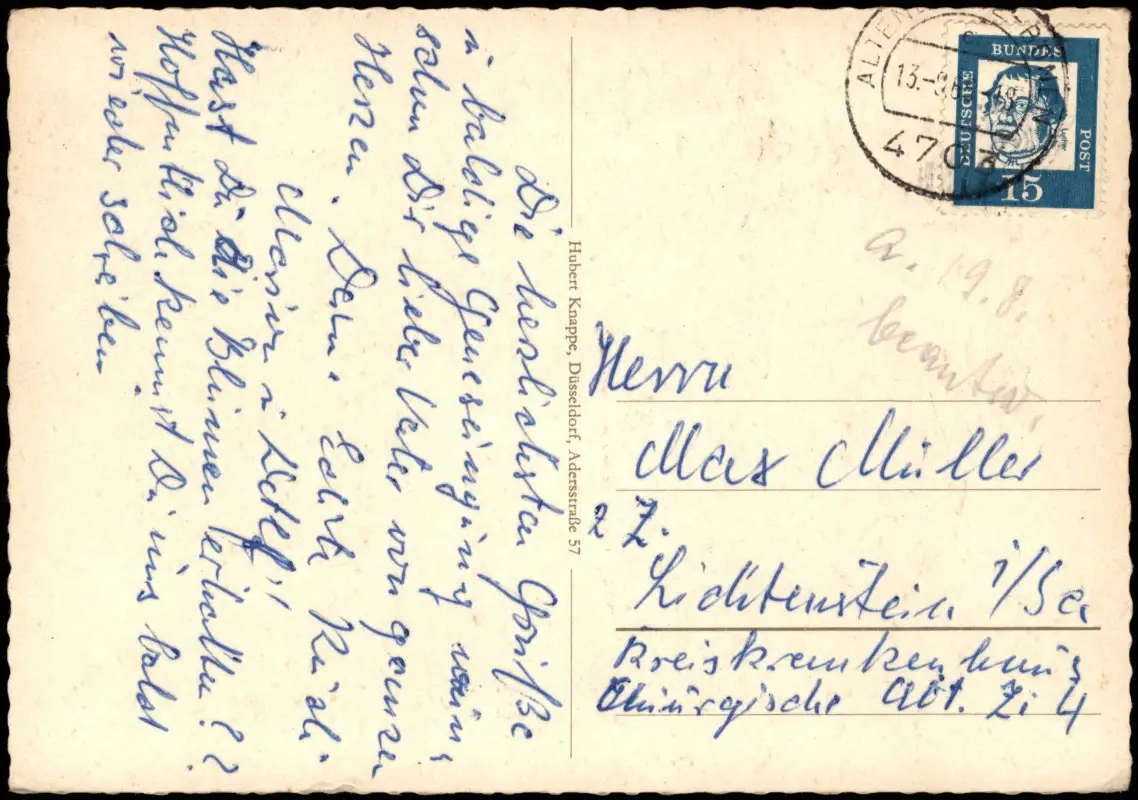 Die herzlichsten Grüße
u baldige Genesung wün-
schen Dir lieber Vater von ganzen
Herzen. Dein. Edith Rudi.
u Detlef!
Hast Du die Blumen erhalten??
Hoffentlich kannst Du uns bald
wieder schreiben
Hubert Knappe, Düsseldorf, Adersstraße 57
13.-8.
470
DEUTSCHE
BUNDES
POST
15
a. 19.8.
beantw.
Herrn
Max Müller
z Z.
Lichtenstein i/Sa
Kreiskrankenhaus
Chirurgische Abt. Zi 4